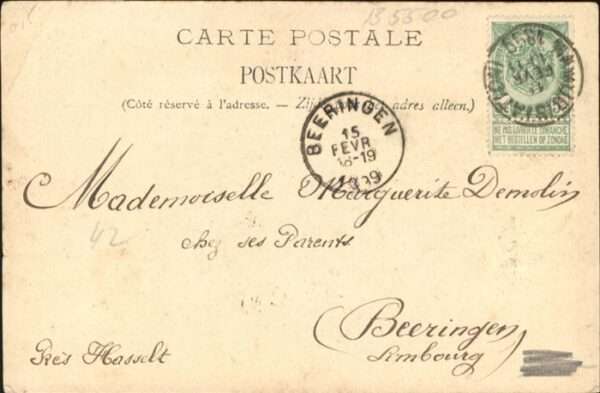 B 5500
CARTE POSTALE
POSTKAART
(Côté réservé à l'adresse. — Zijde adres alleen.)
BEERINGEN
15
FEVR
18-19
1899
NE PAS LIVRER LE DIMANCHE
NIET BESTELLEN OP ZONDAG
Mademoiselle Marguerite Demolin
42
chez ses Parents
Beeringen
Limbourg
Près Hasselt